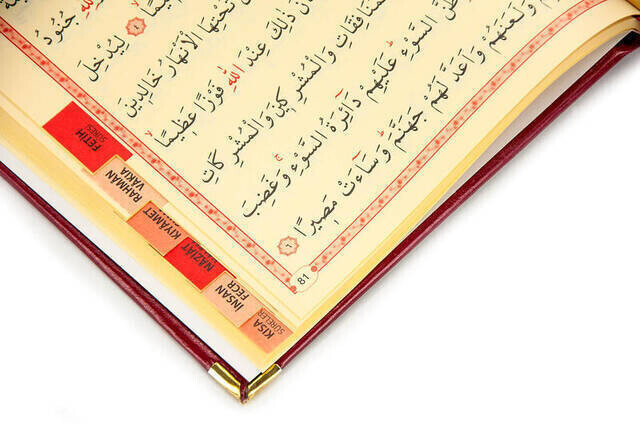 جُنُودُ
٤ لِيُدْخِلَ
تَحْتِهَا الْاَنْهَارُ خَالِدٖينَ
ذٰلِكَ عِنْدَ اللّٰهِ فَوْزًا عَظٖيمًا
وَالْمُشْرِكٖينَ وَالْمُشْرِكَاتِ
ظَنَّ السَّوْءِ عَلَيْهِمْ دَٓائِرَةُ السَّوْءِ وَغَضِبَ
وَلَعَنَهُمْ وَاَعَدَّ لَهُمْ جَهَنَّمَ وَسَٓاءَتْ مَصٖيرًا ٦
81
FETİH
SURESİ
RAHMAN
VAKIA
KIYÂMET
NÂZİÂT
İNSAN
FECR
KISA
SÛRELER